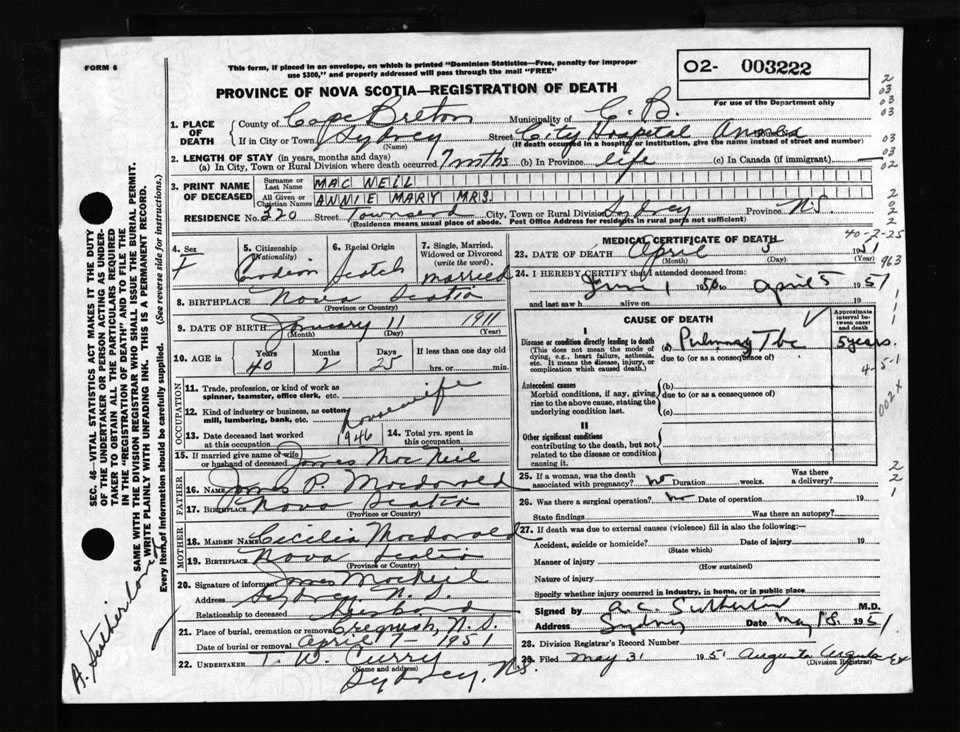 FORM 6
This form, if placed in an envelope, on which is printed "Dominion Statistics—Free, penalty for improper
use $300," and properly addressed will pass through the mail "FREE"
PROVINCE OF NOVA SCOTIA—REGISTRATION OF DEATH
02- 003222
For use of the Department only
1. PLACE OF DEATH County of Cape Breton Municipality of C. B.
If in City or Town Sydney Street City Hospital Annex
(Name) (If death occurred in a hospital or institution, give the name instead of street and number)
2. LENGTH OF STAY (in years, months and days)
(a) In City, Town or Rural Division where death occurred 7 mnths (b) In Province life (c) In Canada (if immigrant)
3. PRINT NAME OF DECEASED Surname or Last Name MAC NEIL
All Given or Christian Names ANNIE MARY MRS.
RESIDENCE No. 320 Street Townsend City, Town or Rural Division Sydney Province N.S.
(Residence means usual place of abode. Post Office Address for residents in rural parts not sufficient)
4. Sex F
5. Citizenship (Nationality) Canadian
6. Racial Origin Scotch
7. Single, Married, Widowed or Divorced (write the word) married
8. BIRTHPLACE Nova Scotia
(Province or Country)
9. DATE OF BIRTH January 11 1911
(Month) (Day) (Year)
10. AGE in Years 40 Months 2 Days 25 If less than one day old hrs. or min.
OCCUPATION
11. Trade, profession, or kind of work as spinner, teamster, office clerk, etc.
housewife
12. Kind of industry or business, as cotton mill, lumbering, bank, etc.
13. Date deceased last worked at this occupation 1946 14. Total yrs. spent in this occupation
15. If married give name of wife or husband of deceased James MacNeil
FATHER
16. NAME James P. Macdonald
17. BIRTHPLACE Nova Scotia
(Province or Country)
MOTHER
18. MAIDEN NAME Cecilia Macdonald
19. BIRTHPLACE Nova Scotia
(Province or Country)
20. Signature of informant James MacNeil
Address Sydney N.S.
Relationship to deceased husband
21. Place of burial, cremation or removal Creignish, N.S.
Date of burial or removal April 7 - 1951
22. UNDERTAKER T. W. Curry
(Name and address)
Sydney, N.S.
MEDICAL CERTIFICATE OF DEATH
40-2-25
23. DATE OF DEATH April 5 1951
(Month) (Day) (Year)
963
24. I HEREBY CERTIFY that I attended deceased from:
June 1 1950 to April 5 1951
and last saw h alive on 19
CAUSE OF DEATH
Approximate interval between onset and death
I
Disease or condition directly leading to death (a) Pulmonary Tbc 5 years.
(This does not mean the mode of dying, e.g., heart failure, asthenia, etc. It means the disease, injury, or complication which caused death.)
due to (or as a consequence of)
4-5-1
Antecedent causes (b)
Morbid conditions, if any, giving rise to the above cause, stating the underlying condition last.
due to (or as a consequence of)
(c)
002 x
II
Other significant conditions
contributing to the death, but not related to the disease or condition causing it.
25. If a woman, was the death associated with pregnancy? No Duration weeks. Was there a delivery?
26. Was there a surgical operation? No Date of operation 19
State findings Was there an autopsy?
27. If death was due to external causes (violence) fill in also the following:—
Accident, suicide or homicide? Date of injury 19
(State which)
Manner of injury
(How sustained)
Nature of injury
Specify whether injury occurred in industry, in home, or in public place
Signed by M.D.
Address Sydney Date May 18 1951
28. Division Registrar's Record Number
29. Filed May 31 1951
(Division Registrar)
SEC. 46—VITAL STATISTICS ACT MAKES IT THE DUTY
OF THE UNDERTAKER OR PERSON ACTING AS UNDER-
TAKER TO OBTAIN ALL THE PARTICULARS REQUIRED
IN THE "REGISTRATION OF DEATH" AND TO FILE THE
SAME WITH THE DIVISION REGISTRAR WHO SHALL ISSUE THE BURIAL PERMIT.
WRITE PLAINLY WITH UNFADING INK. THIS IS A PERMANENT RECORD.
Every item of information should be carefully supplied. (See reverse side for instructions.)